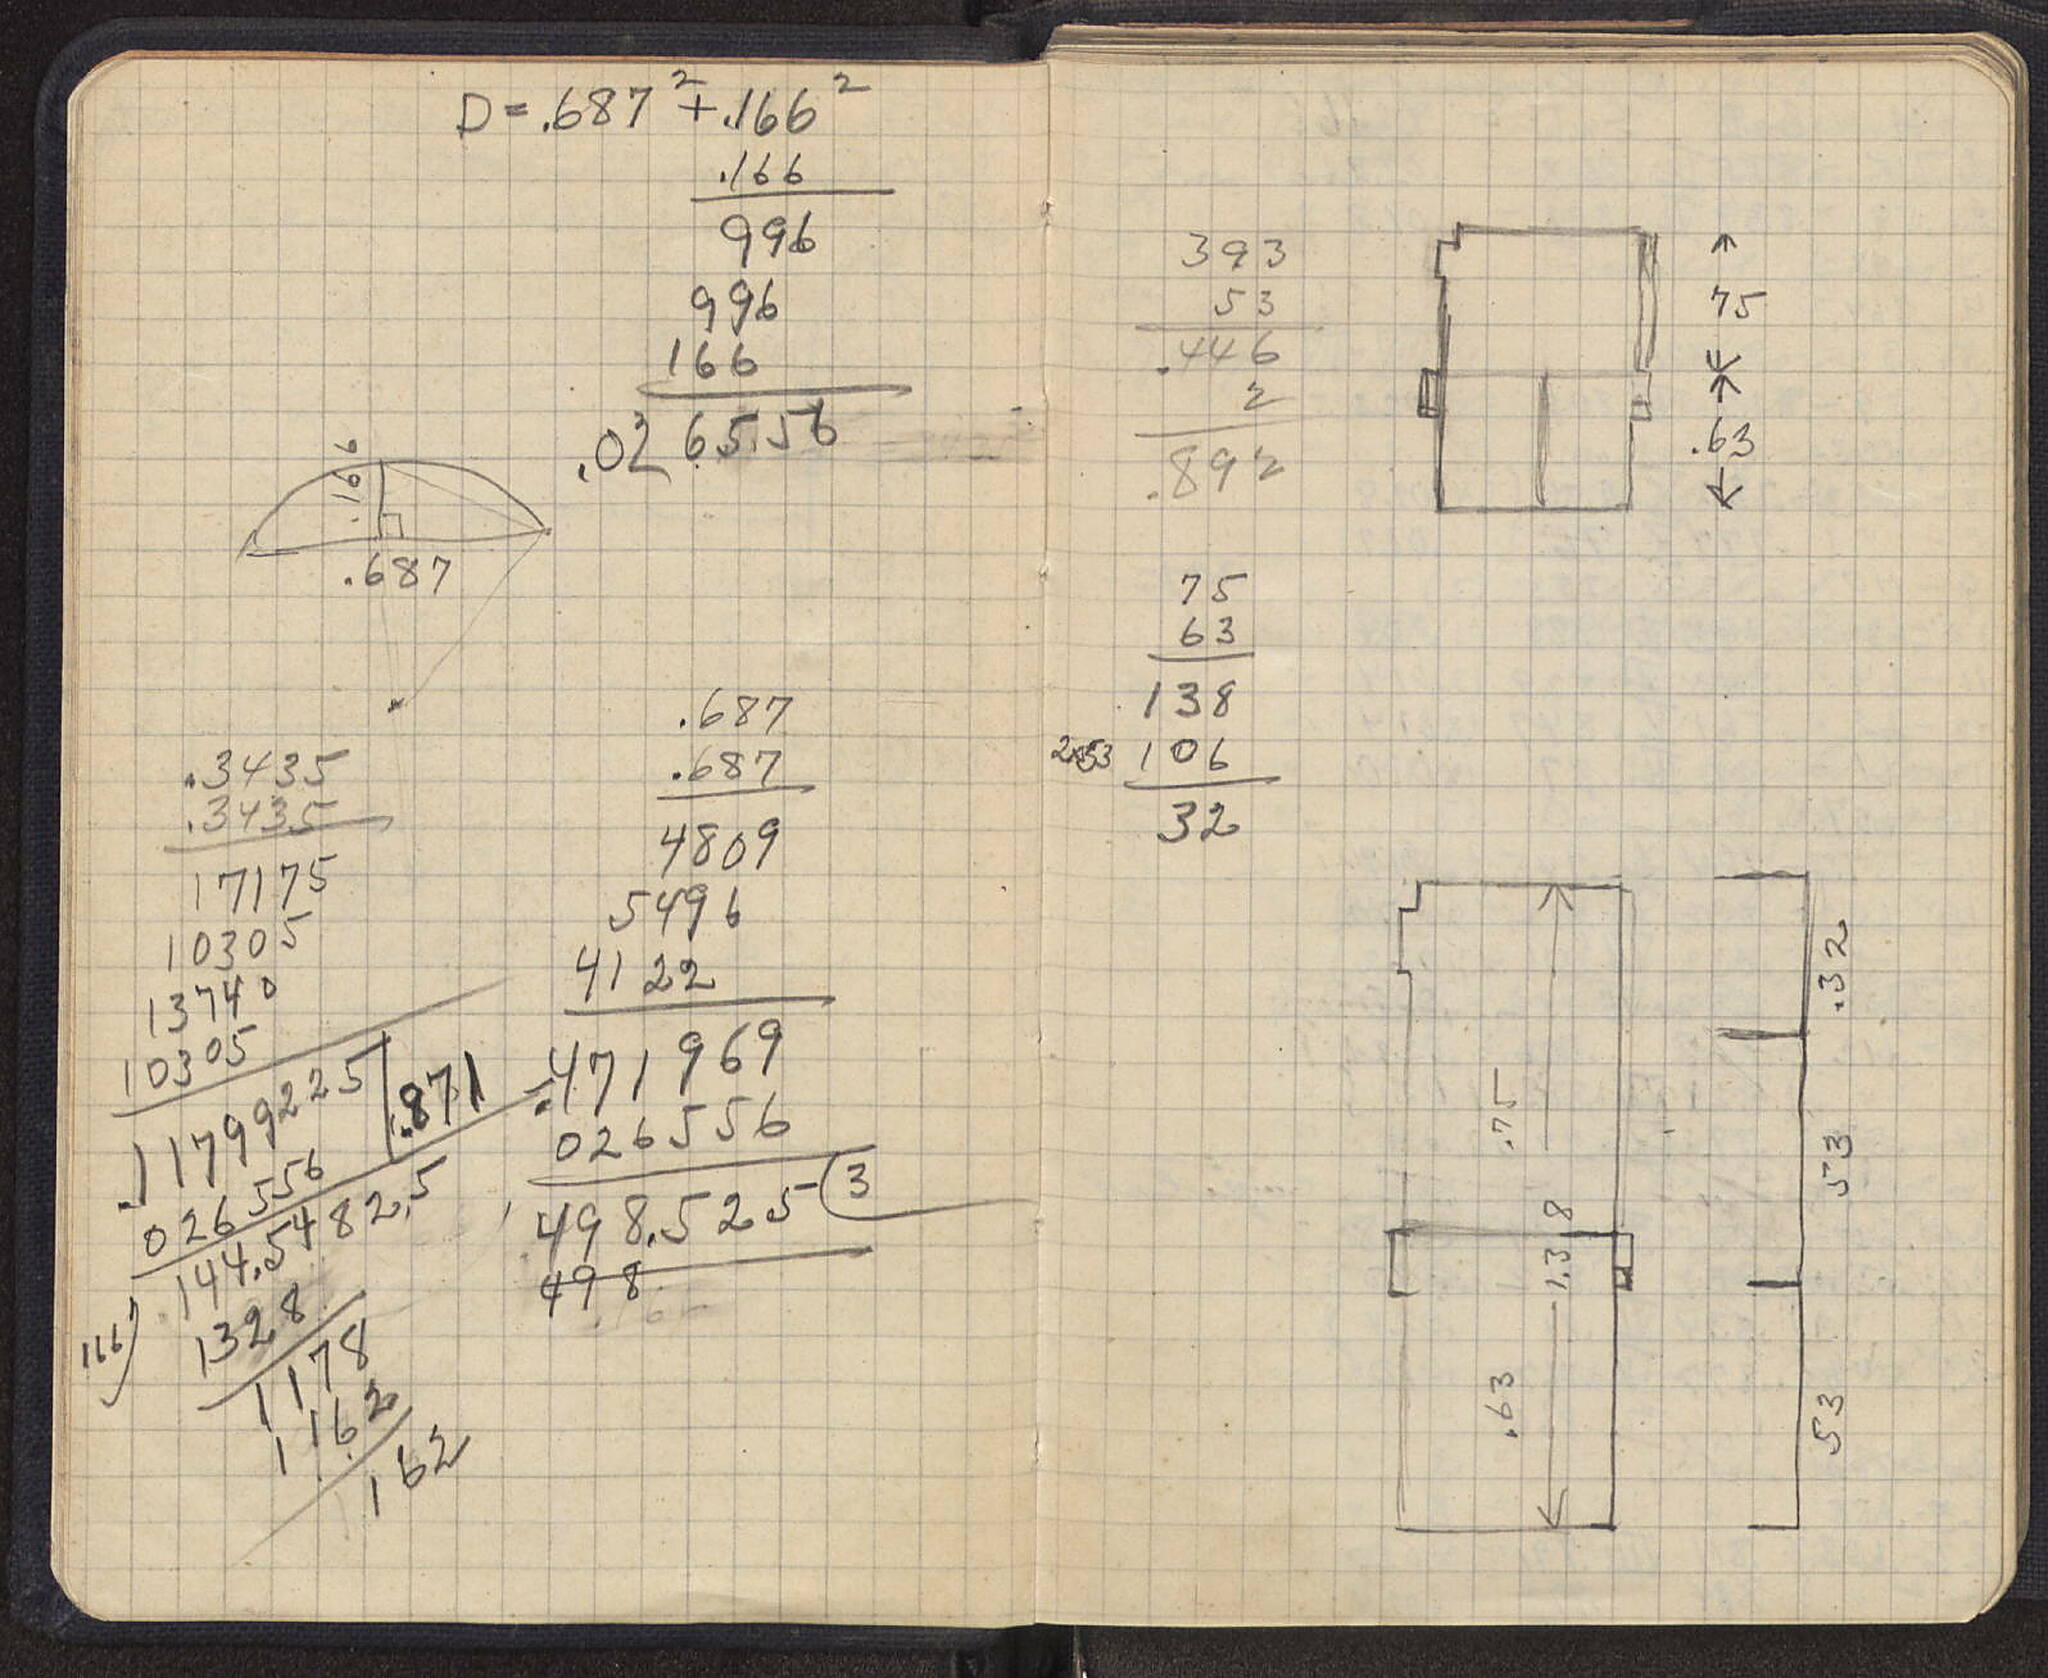 D = .687² + .166²
.166
996
996
166
.026556
.166
.687
.3435
.3435
17175
10305
13740
10305
.11799225 .871
026556
144.5482.5
166
1328
1178
1162
162
.687
.687
4809
5496
4122
.471969
026556
498.525 3
498
393
53
.446
2
.892
75
.63
75
63
138
2x53 106
32
.75
1.38
.63
.32
53
53